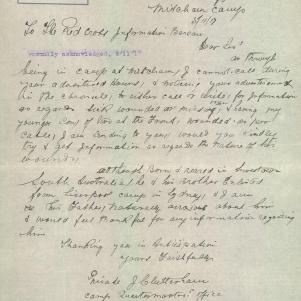 Mitcham Camp
5/11/17
To The Red Cross Information Bureau
Personally acknowledged, 8/11/17
Dear Sir
as Private
being in camp at Mitcham I cannot call during
your advertised Hours, & noticing your advertisement
in the Chronicle, to either call or write, for information
as regards Sick wounded or missing, & having my
younger Son of two at the Front, wounded, as per
cable, I am writing to you, would you kindly
try & get Information as regards the nature of his
wounds
although Born & reared in
South Australia he & his Brother Enlisted
from Liverpool camp in Sydney, & I am
as his Father, Naturally anxious about him
& would feel thankful for any information regarding
him
Thanking you in Anticipation
yours Faithfully
Private J Cletterham
camp Quartermasters office